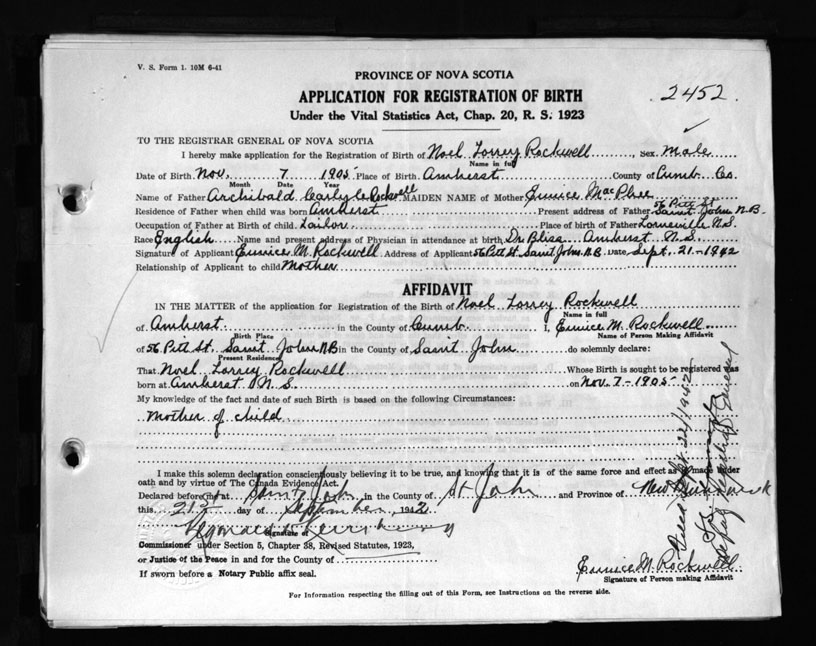 V. S. Form 1. 10M 6-41
PROVINCE OF NOVA SCOTIA
APPLICATION FOR REGISTRATION OF BIRTH
2452
Under the Vital Statistics Act, Chap. 20, R. S. 1923
TO THE REGISTRAR GENERAL OF NOVA SCOTIA
I hereby make application for the Registration of Birth of Noel Lorrey Rockwell, Sex Male
Name in full
Date of Birth Nov. 7 1905 Place of Birth Amherst County of Cumb. Co.
Month Date Year
Name of Father Archibald Carlyle Rockwell MAIDEN NAME of Mother Eunice MacPhee
56 Pitt St
Residence of Father when child was born Amherst Present address of Father Saint John N.B.
Occupation of Father at Birth of child Tailor Place of birth of Father Lorneville N.S.
Race English Name and present address of Physician in attendance at birth Dr Bliss Amherst N.S.
Signature of Applicant Eunice M. Rockwell Address of Applicant 56 Pitt St. Saint John N.B. Date Sept. 21-1942
Relationship of Applicant to child Mother
AFFIDAVIT
IN THE MATTER of the application for Registration of the Birth of Noel Lorrey Rockwell
Name in full
of Amherst in the County of Cumb. I, Eunice M. Rockwell
Birth Place Name of Person Making Affidavit
of 56 Pitt St. Saint John N.B in the County of Saint John do solemnly declare:
Present Residence
That Noel Lorrey Rockwell Whose Birth is sought to be registered was
born at Amherst N.S. on Nov. 7-1905
My knowledge of the fact and date of such Birth is based on the following Circumstances:
Mother of child
I make this solemn declaration conscientiously believing it to be true, and knowing that it is of the same force and effect as if made under
oath and by virtue of The Canada Evidence Act.
Declared before me at Saint John in the County of St John and Province of New Brunswick
this 21st day of September 1942
Signature of
Commissioner under Section 5, Chapter 38, Revised Statutes, 1923,
or Justice of the Peace in and for the County of
Eunice M. Rockwell
If sworn before a Notary Public affix seal.
Signature of Person making Affidavit
For Information respecting the filling out of this Form, see Instructions on the reverse side.